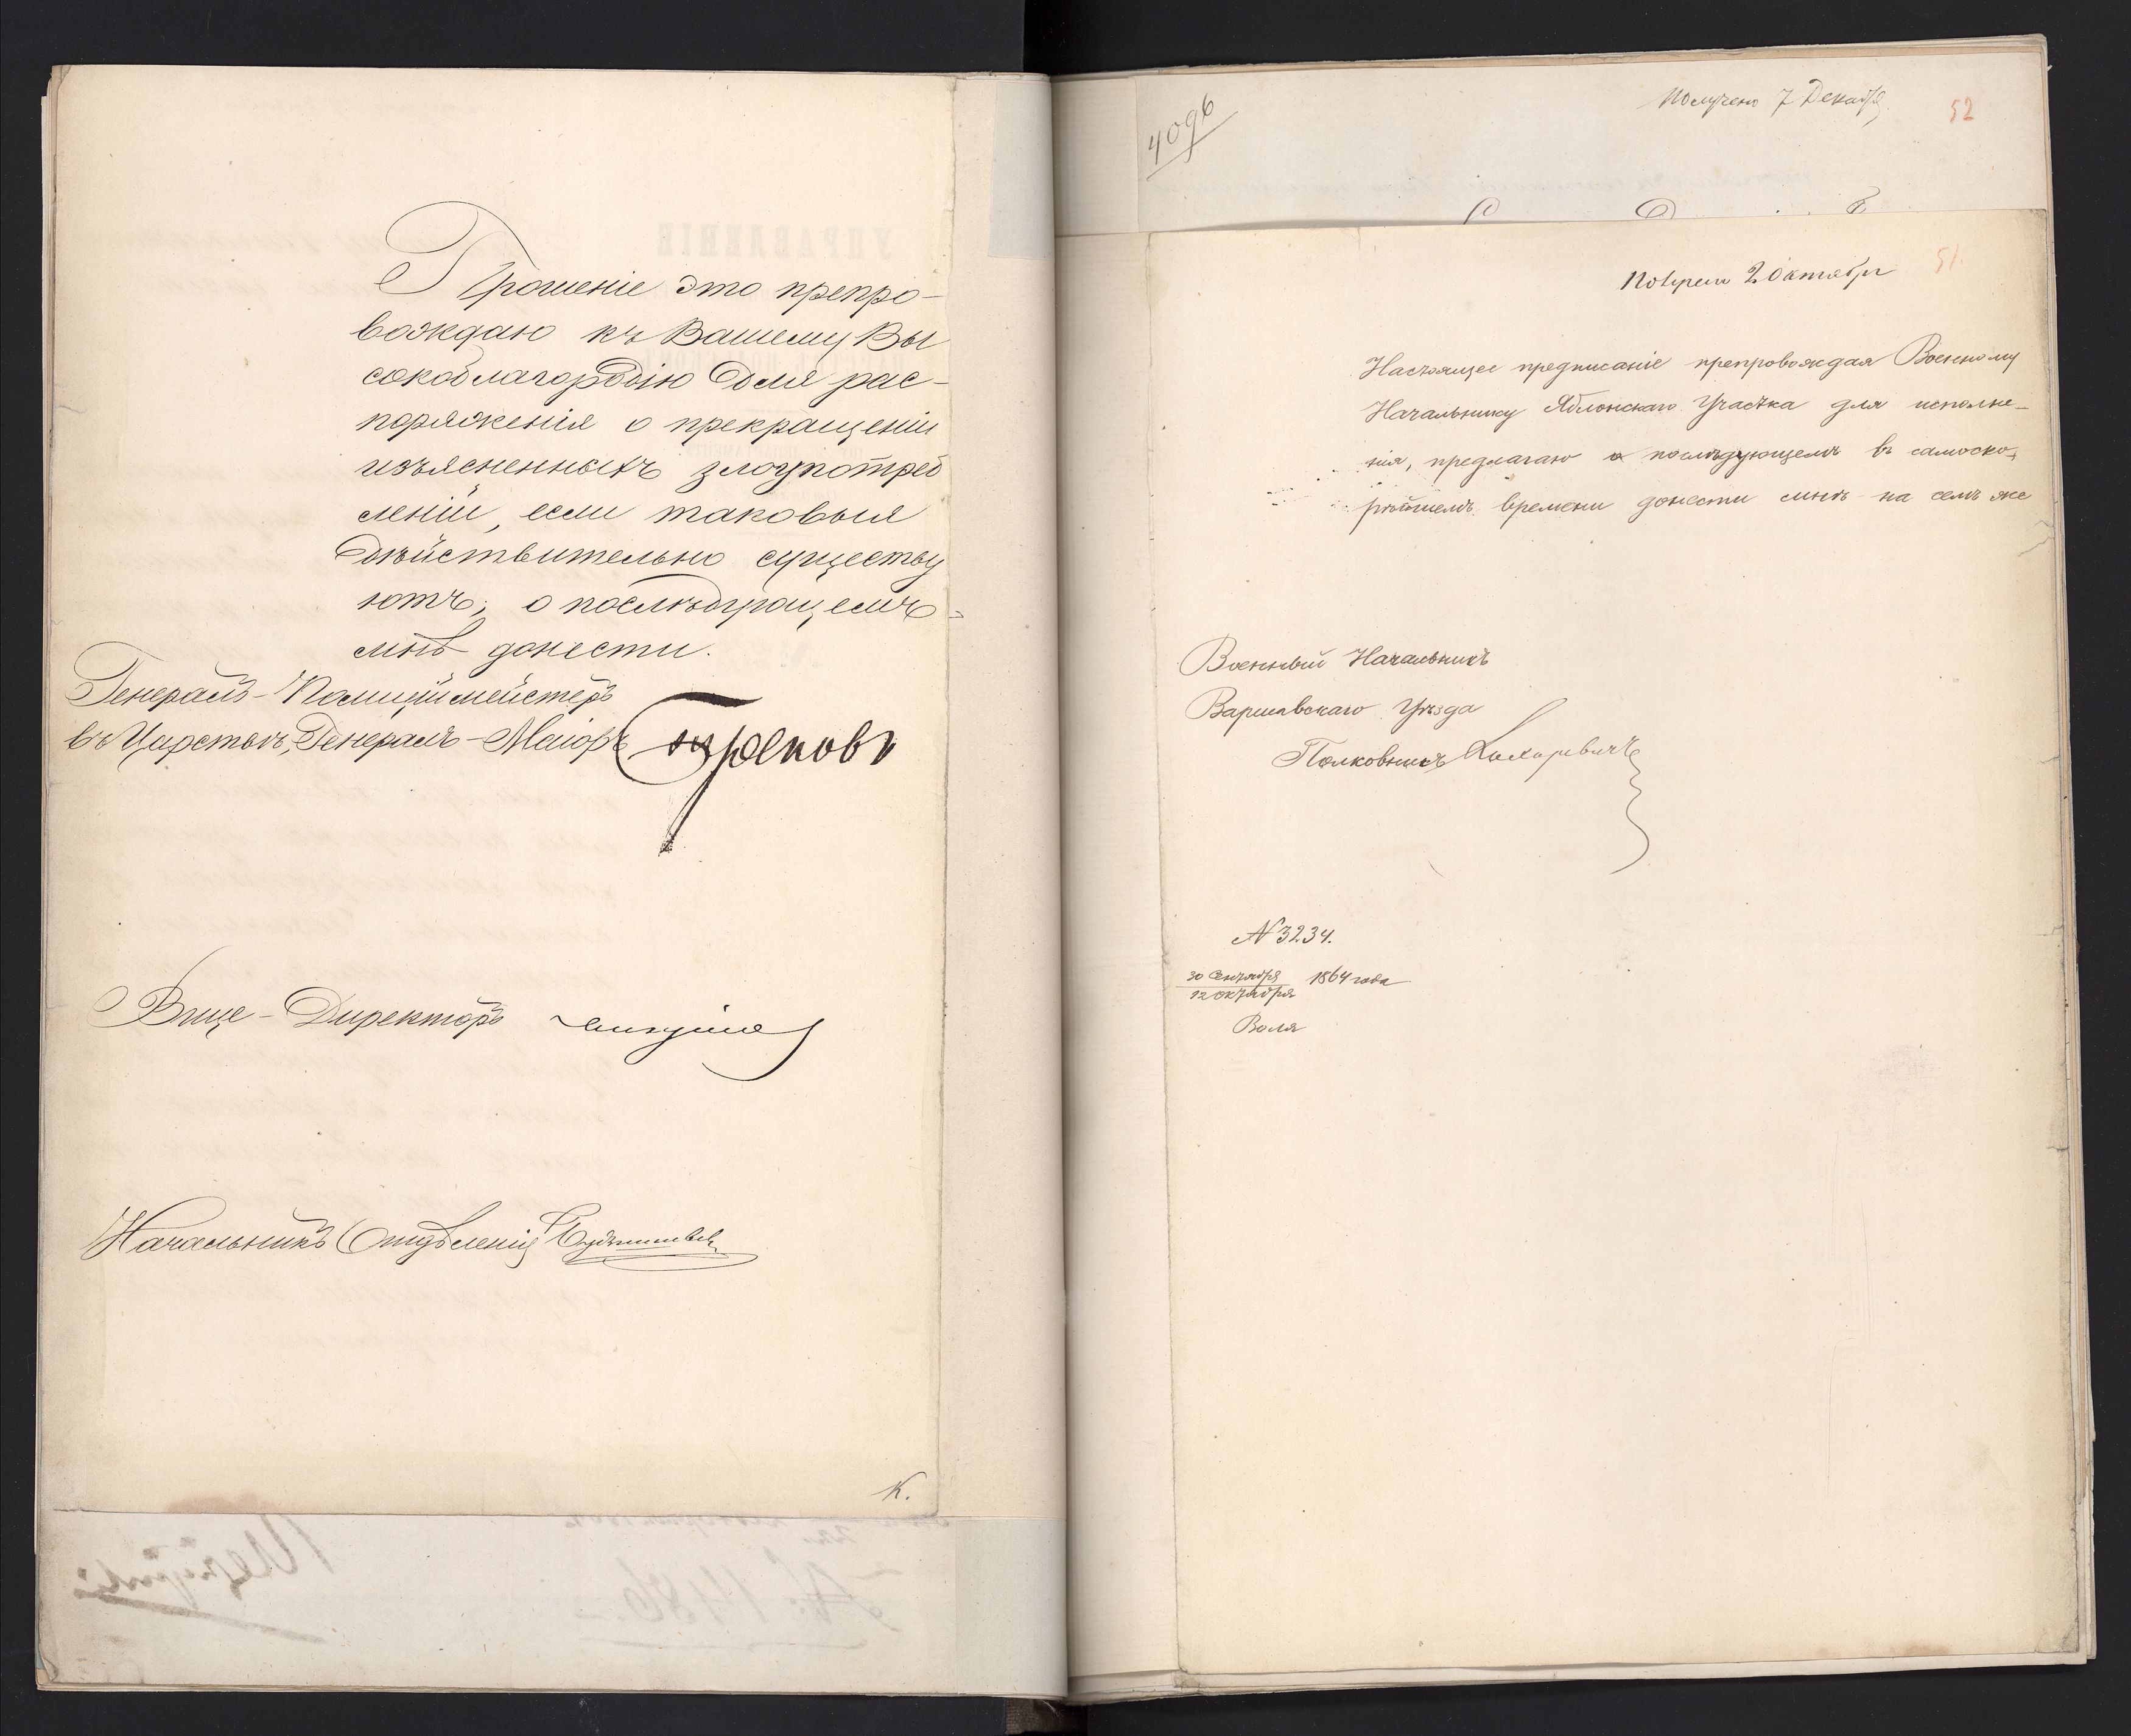 Прошеніе это препро-
вождаю къ Вашему Вы
сокоблагородію для рас-
поряженія о прекращеніи
изъясненныхъ злоупотреб
леній, если таковыя
дѣйствительно существу
ютъ; о послѣдующемъ
мнѣ донести.
Генералъ-Полиціймейстеръ
въ Царствѣ, Генералъ-Маіоръ
Вице-Директоръ
Начальникъ Отдѣленія
К.
4096
Получено 7 Декабря
52
51.
2 Октября
Настоящее предписаніе препровождая Военному
Начальнику Яблонскаго Участка для исполне-
нія, предлагаю о послѣдующемъ въ самоско-
рѣйшемъ времени донести мнѣ на семъ же
Военный Начальникъ
Варшавскаго Уѣзда
Полковникъ
№ 3234.
30 Сентября
12 Октября 1864 года
Воля